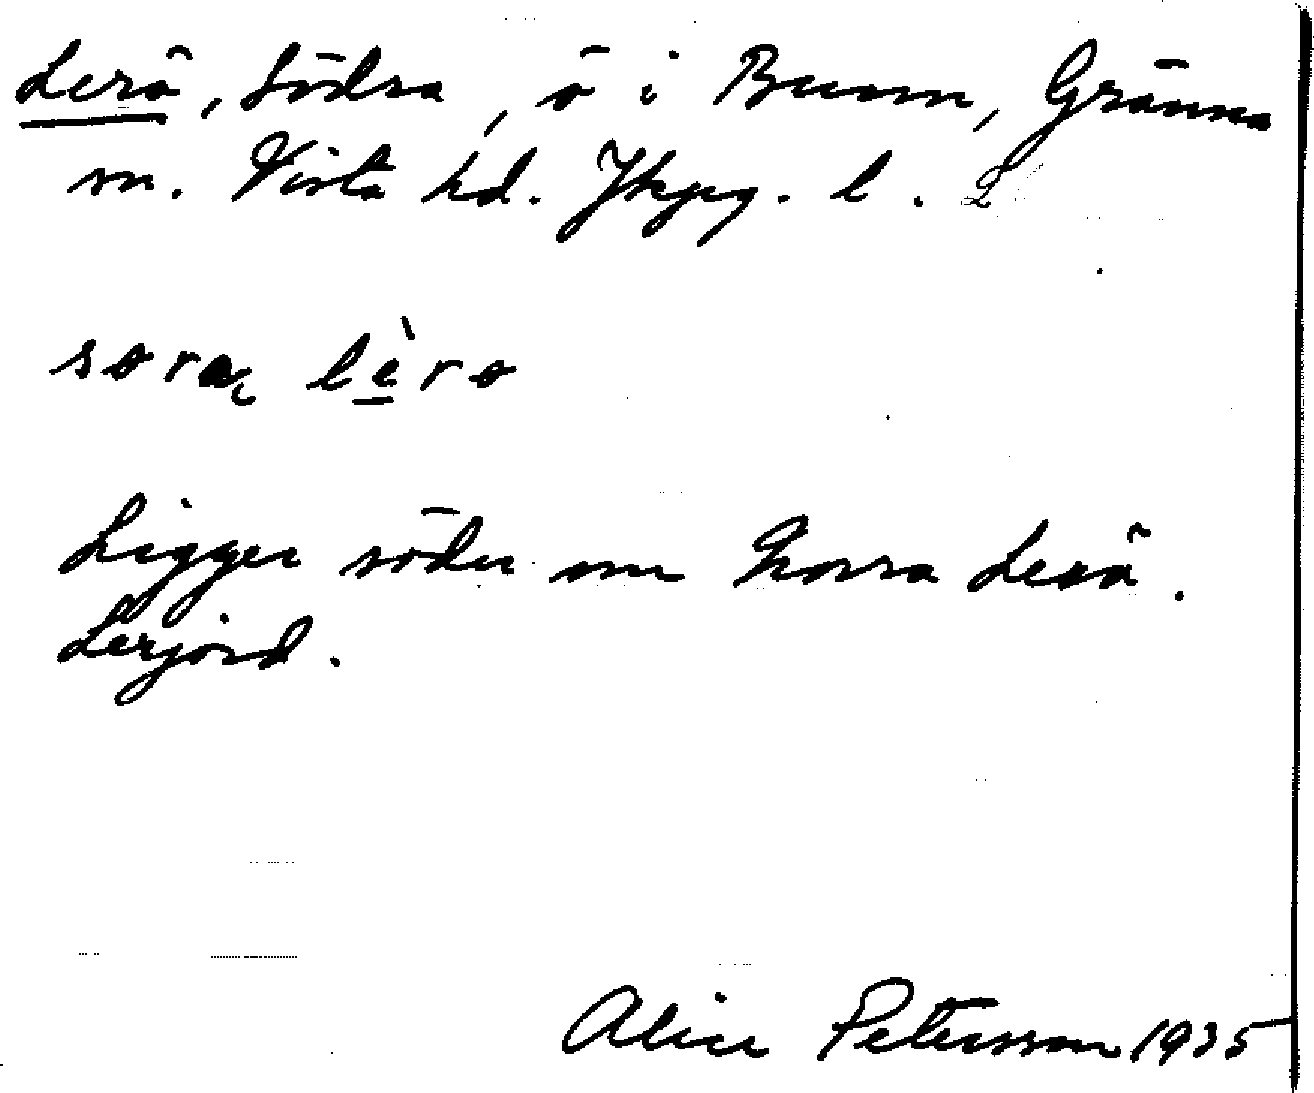 Lerö, Södra, ö i Bunn, Gränna
sn. Vista hd. Jkpg. l.
sora lèro
Ligger söder om Norra Lerö.
Lerjord.
Alice Petersson 1935